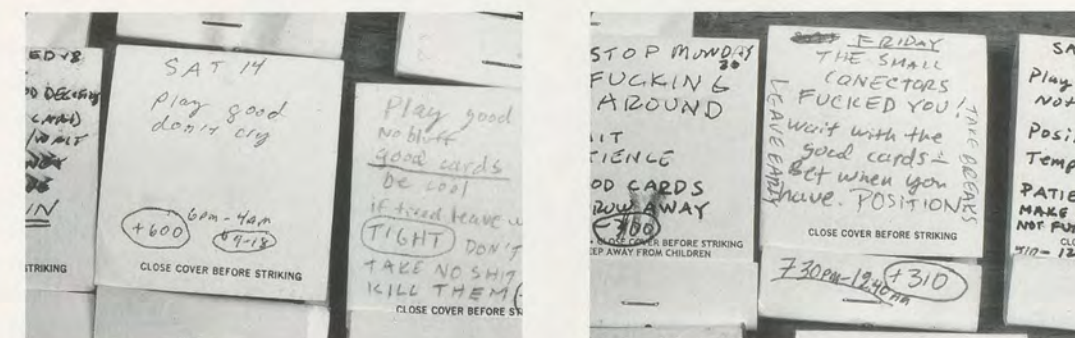 ED 18
CARD
WAIT
IN
STRIKING
SAT 14
Play good
don't cry
+600
6pm - 4am
9-18
CLOSE COVER BEFORE STRIKING
Play good
No bluff
good cards
be cool
if tired leave
TIGHT DON'T
TAKE NO SHIT
KILL THEM
CLOSE COVER BEFORE
STOP MONDAY
30
FUCKING
AROUND
IT
TIENCE
OD CARDS
AWAY
-700
BEFORE STRIKING
EP AWAY FROM CHILDREN
FRIDAY
THE SMALL
CONECTORS
FUCKED YOU!
Wait with the
good cards -
Bet when you
have. POSITION
LEAVE EARLY
TAKE BREAKS
CLOSE COVER BEFORE STRIKING
730pm-1240am
+310
SA
Play
Not
Posi
Temp
PATIE
MAKE
NOT FU
CLO